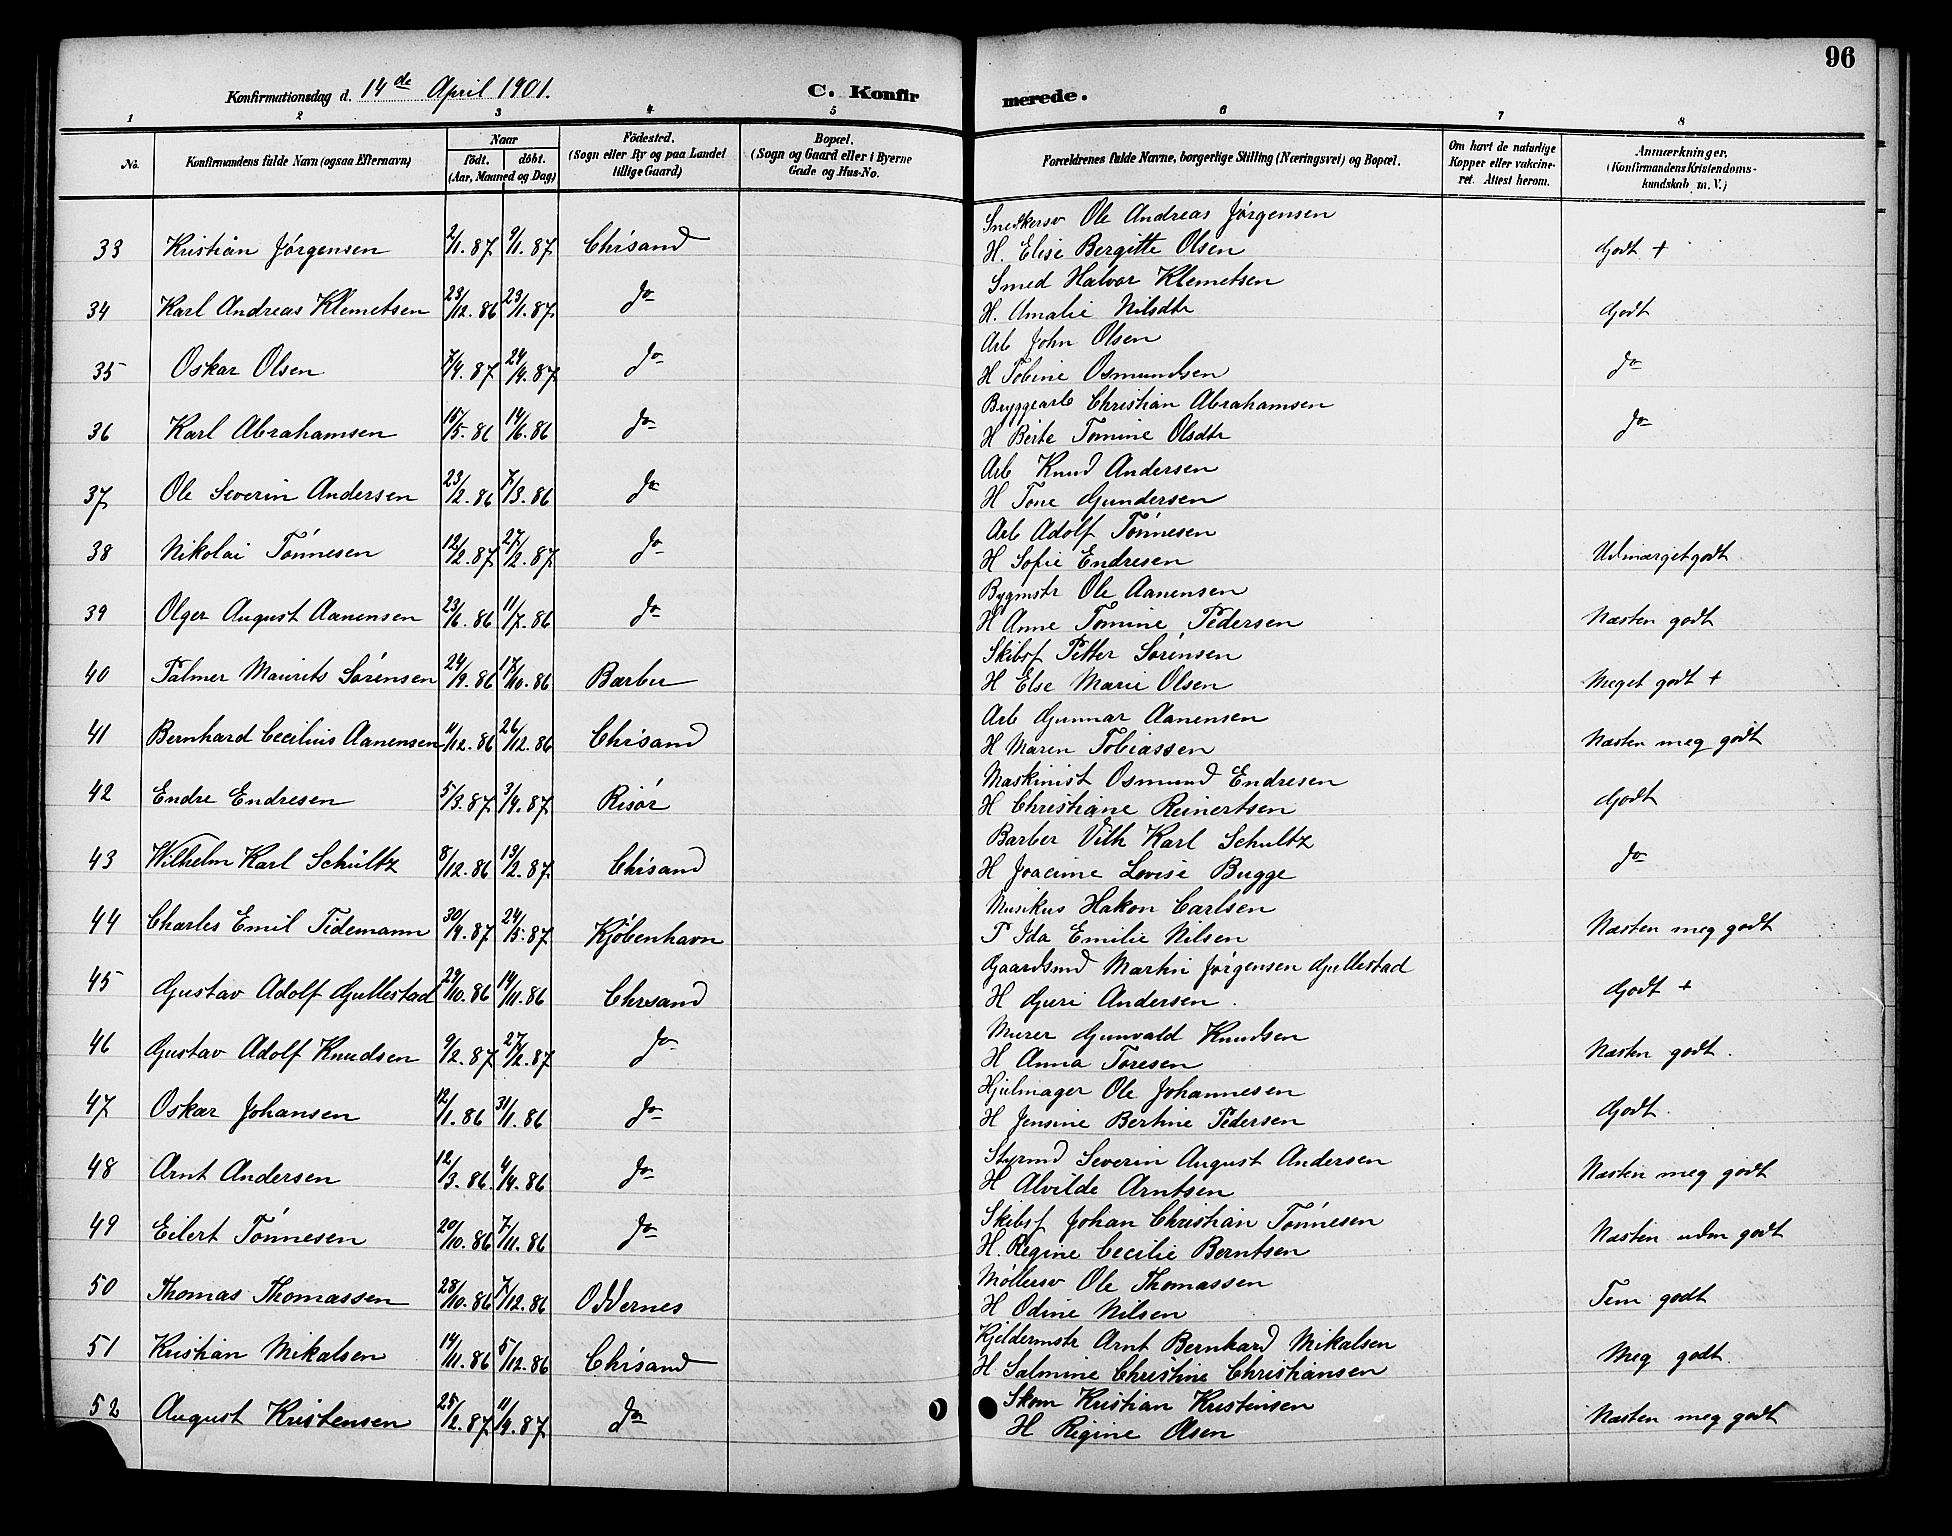 96
Konfirmationsdag d. 14de April 1901.
C. Konfirmerede.
1 2 3 4 5 6 7 8
No. Konfirmandens fulde Navn (ogsaa Efternavn) Naar født. døbt. (Aar, Maaned og Dag) Födested. (Sogn eller By og paa Landet tillige Gaard) Bopæl. (Sogn og Gaard eller i Byerne Gade og Hus-No. Forældrenes fulde Navne, borgerlige Stilling (Næringsvei) og Bopæl. Om havt de naturlige Kopper eller vakcineret. Attest herom. Anmærkninger. (Konfirmandens Kristendomskundskab m. V.)
Snedkersv Ole Andreas Jørgensen
33 Kristian Jørgensen 2/1. 87 9/1. 87 Chrsand H. Elise Bergitte Olsen Godt +
Smed Halvor Klemetsen
34 Karl Andreas Klemetsen 23/12. 86 23/1. 87. do H. Amalie Nilsdtr Godt
Arb John Olsen
35 Oskar Olsen 7/4. 87 24/4. 87. do H Tobine Osmundsen do
Bryggearb Christian Abrahamsen
36 Karl Abrahamsen 15/5. 86 14/6. 86 do H Berte Tomine Olsdtr do
Arb Knud Andersen
37 Ole Severin Andersen 23/2. 86 7/3. 86 do H Tone Gundersen
Arb Adolf Tønnesen
38 Nikolai Tønnesen 12/2. 87 27/2. 87. do H Sofie Endresen Udmærgetgodt
Bygmstr Ole Aanensen
39 Olger August Aanensen 23/6. 86 11/7. 86 do H Anne Tomine Pedersen Næsten godt
Skibsf Petter Sørensen
40 Palmer Maurits Sørensen 24/9. 86 17/10. 86 Barber H Else Marie Olsen Meget godt +
Arb Gunnar Aanensen
41 Bernhard Cecilius Aanensen 4/12. 86 26/12. 86 Chrsand H Maren Tobiassen Næsten meg godt
Maskinist Osmund Endresen
42 Endre Endresen 5/3. 87 3/4. 87 Risør H Christiane Reinertsen Godt
Barber Vilh Karl Schultz
43 Wilhelm Karl Schultz 8/12. 86 13/2. 87. Chrsand H Joacime Lovise Bugge do
Musikus Hakon Carlsen
44 Charles Emil Tidemann 30/4. 87 24/5. 87. Kjøbenhavn P Ida Emilie Nilsen Næsten meg godt
Gaardsmd Martin Jørgensen Gullestad
45 Gustav Adolf Gullestad 29/10. 86 14/11. 86 Chrsand H Guri Andersen. Godt +
Murer Gunvald Knudsen
46 Gustav Adolf Knudsen 9/2. 87 27/2. 87 do H Anna Toresen Næsten godt.
Hjulmager Ole Johannesen
47 Oskar Johansen 12/1. 86 31/1. 86 do H Jensine Bertine Pedersen Godt.
Styrmd Severin August Andersen
48 Arnt Andersen 12/3. 86. 4/4. 86 do H Alvilde Arntsen Næsten meg godt
Skibsf Johan Christian Tønnesen
49 Eilert Tønnesen 20/10. 86 7/11. 86 do H. Regine Cecilie Berntsen Næsten udm godt
Møllersv Ole Thomassen
50 Thomas Thomassen 28/10. 86 7/12. 86 Oddernes H Odine Nilsen Tem godt
Kjeldermstr Arnt Bernhard Mikalsen
51 Kristian Mikalsen 14/11. 86 5/12. 86 Chrsand H Salmine Christine Christiansen Meg godt.
Skom Kristian Kristensen
52 August Kristensen 25/2. 87 11/4. 87 do H Regine Olsen Næsten meg godt